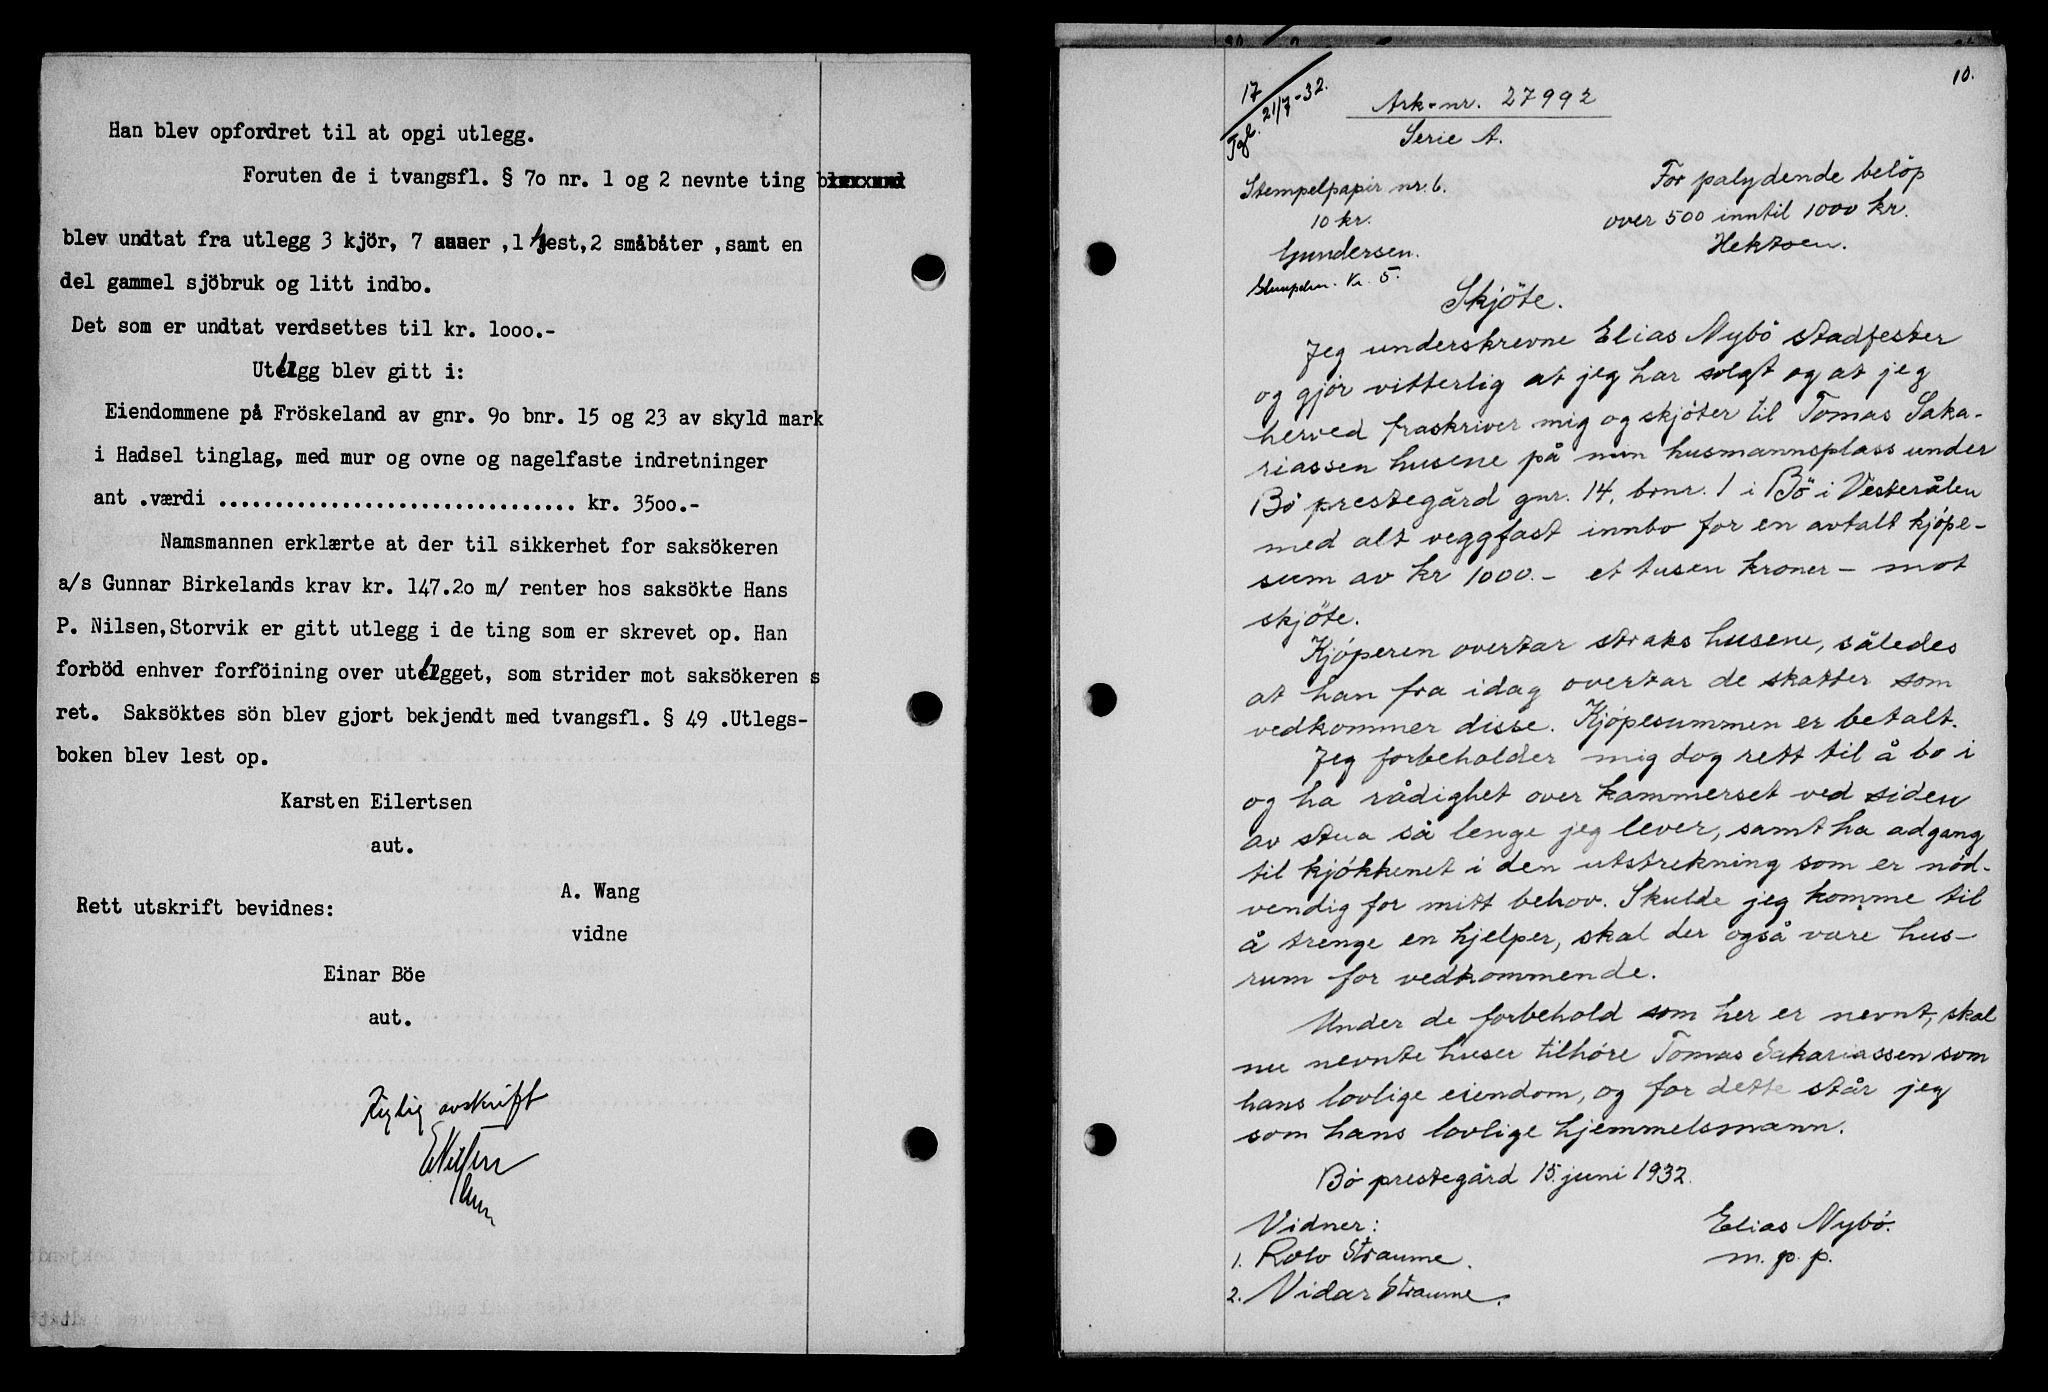 Han blev opfordret til at opgi utlegg.
Foruten de i tvangsfl. § 7o nr. 1 og 2 nevnte ting
blev undtat fra utlegg 3 kjör, 7 sauer ,1 hest,2 småbåter ,samt en
del gammel sjöbruk og litt indbo.
Det som er undtat verdsettes til kr. 1ooo.-
Utlegg blev gitt i:
Eiendommene på Fröskeland av gnr. 9o bnr. 15 og 23 av skyld mark
i Hadsel tinglag, med mur og ovne og nagelfaste indretninger
ant .værdi ................................ kr. 35oo.-
Namsmannen erklærte at der til sikkerhet for saksökeren
a/s Gunnar Birkelands krav kr. 147.2o m/ renter hos saksökte Hans
P. Nilsen,Storvik er gitt utlegg i de ting som er skrevet op. Han
forböd enhver forföining over utlegget, som strider mot saksökeren s
ret. Saksöktes sön blev gjort bekjendt med tvangsfl. § 49 .Utlegs-
boken blev lest op.
Karsten Eilertsen
aut.
A. Wang
Rett utskrift bevidnes:
vidne
Einar Böe
aut.
Rigtig avskrift
10.
17
Dgf. 21/7-32.
Ark-nr. 27992
Serie A.
Stempelpapir nr. 6.
10 kr.
Gundersen.
Stempelm. Kr. 5.
For palydende beløp
over 500 inntil 1000 kr.
Hektoen.
Skjöte.
Jeg underskrevne Elias Nybö stadfester
og gjör vitterlig at jeg har solgt og at jeg
herved fraskriver mig og skjöter til Tomas Saka-
riassen husene på min husmannsplass under
Bö prestegård gnr. 14, brnr. 1 i Bö i Vesterålen
med alt veggfast innbo for en avtalt kjöpe-
sum av kr 1000.- et tusen kroner - mot
skjöte.
Kjöperen overtar straks husene, således
at han fra idag overtar de skatter som
vedkommer disse. Kjöpesummen er betalt.
Jeg forbeholder mig dog rett til å bo i
og ha rådighet over kammerset ved siden
av stua så lenge jeg lever, samt ha adgang
til kjökkenet i den utstrekning som er nöd-
vendig for mitt behov. Skulde jeg komme til
å trenge en hjelper, skal der også være hus-
rum for vedkommende.
Under de forbehold som her er nevnt, skal
nu nevnte huser tilhöre Tomas Sakariassen som
hans lovlige eiendom, og for dette står jeg
som hans lovlige hjemmelsmann.
Bö prestegård 15. juni 1932.
Vidner:
Elias Nybö.
m. p. p.
1. Rolv Straume.
2. Vidar Straume.